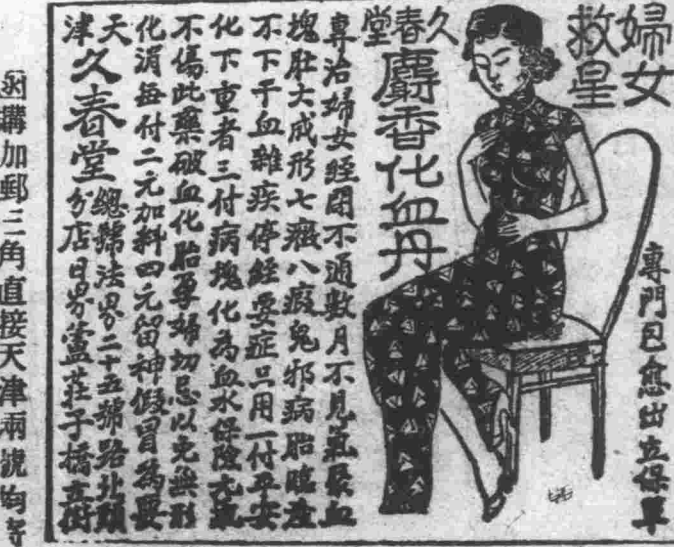 婦女
救星
專門包愈出立保單
久春堂
麝香化血丹
專治婦女經閉不通數月不見氣聚血
塊肚大成形七癥八瘕鬼邪病胎臨產
不下干血雜疾停經要症只用一付平安
化下重者三付病塊化為血水保險元氣
不傷此藥破血化胎孕婦切忌以免無形
化消每付二元加料四元留神假冒為要
天津久春堂
總號法界二十五號路北頭
分店日界蘆莊子橋立街
函購加郵二角直接天津兩號均寄